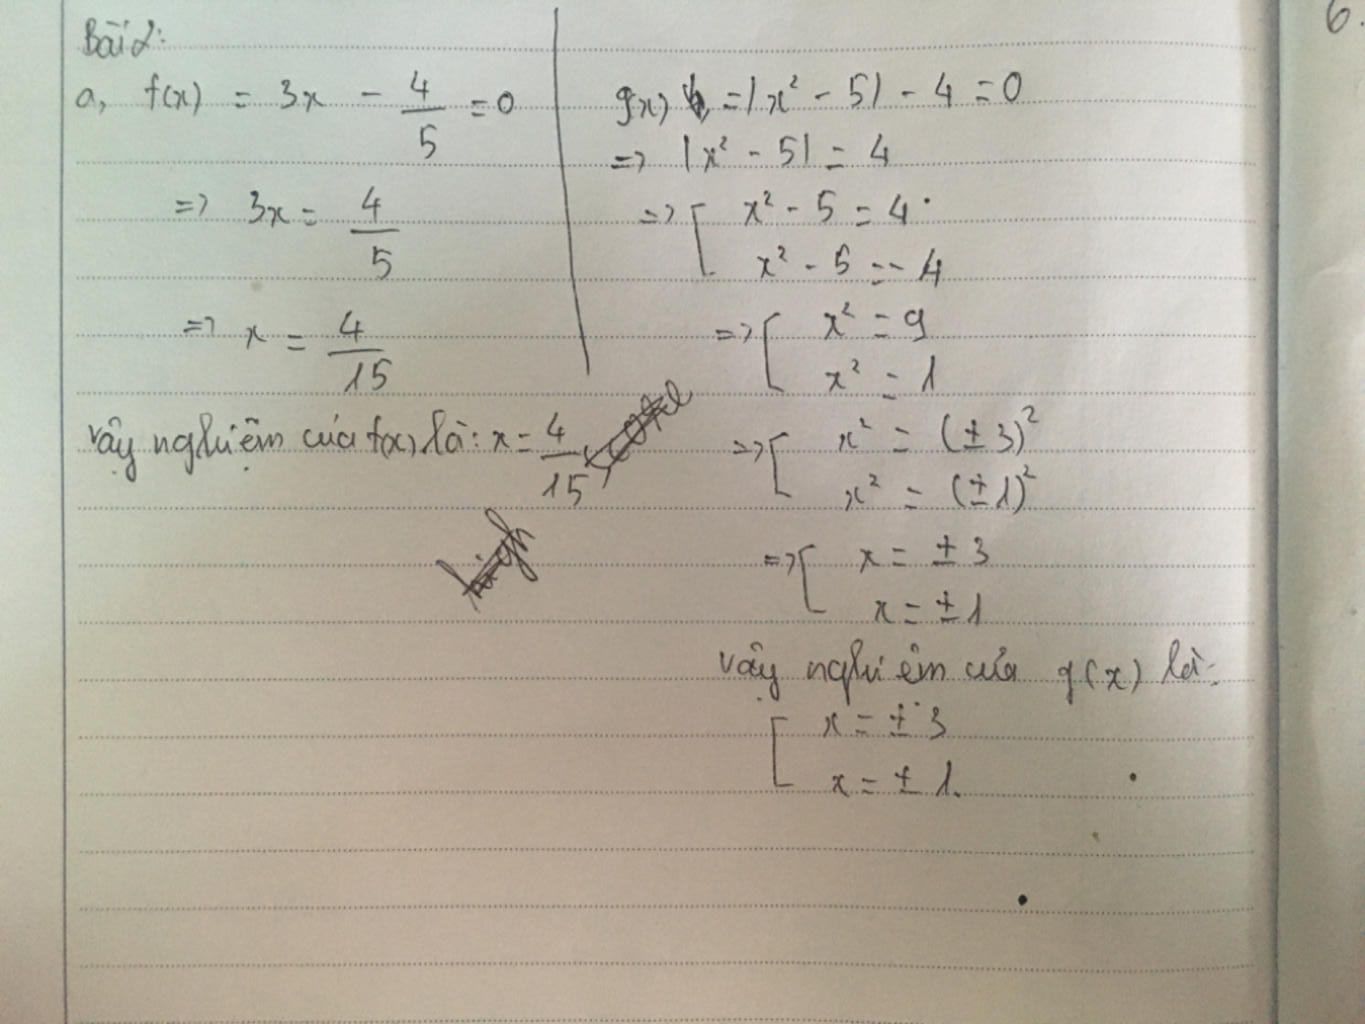 Bài 2:
a, f(x) = 3x - 4/5 = 0
=> 3x = 4/5
=> x = 4/15
vậy nghiệm của f(x) là: x = 4/15
g(x) = |x² - 5| - 4 = 0
=> |x² - 5| = 4
=> [ x² - 5 = 4
x² - 5 = -4
=> [ x² = 9
x² = 1
=> [ x² = (±3)²
x² = (±1)²
=> [ x = ±3
x = ±1
vậy nghiệm của g(x) là:
[ x = ±3
x = ±1.
6.